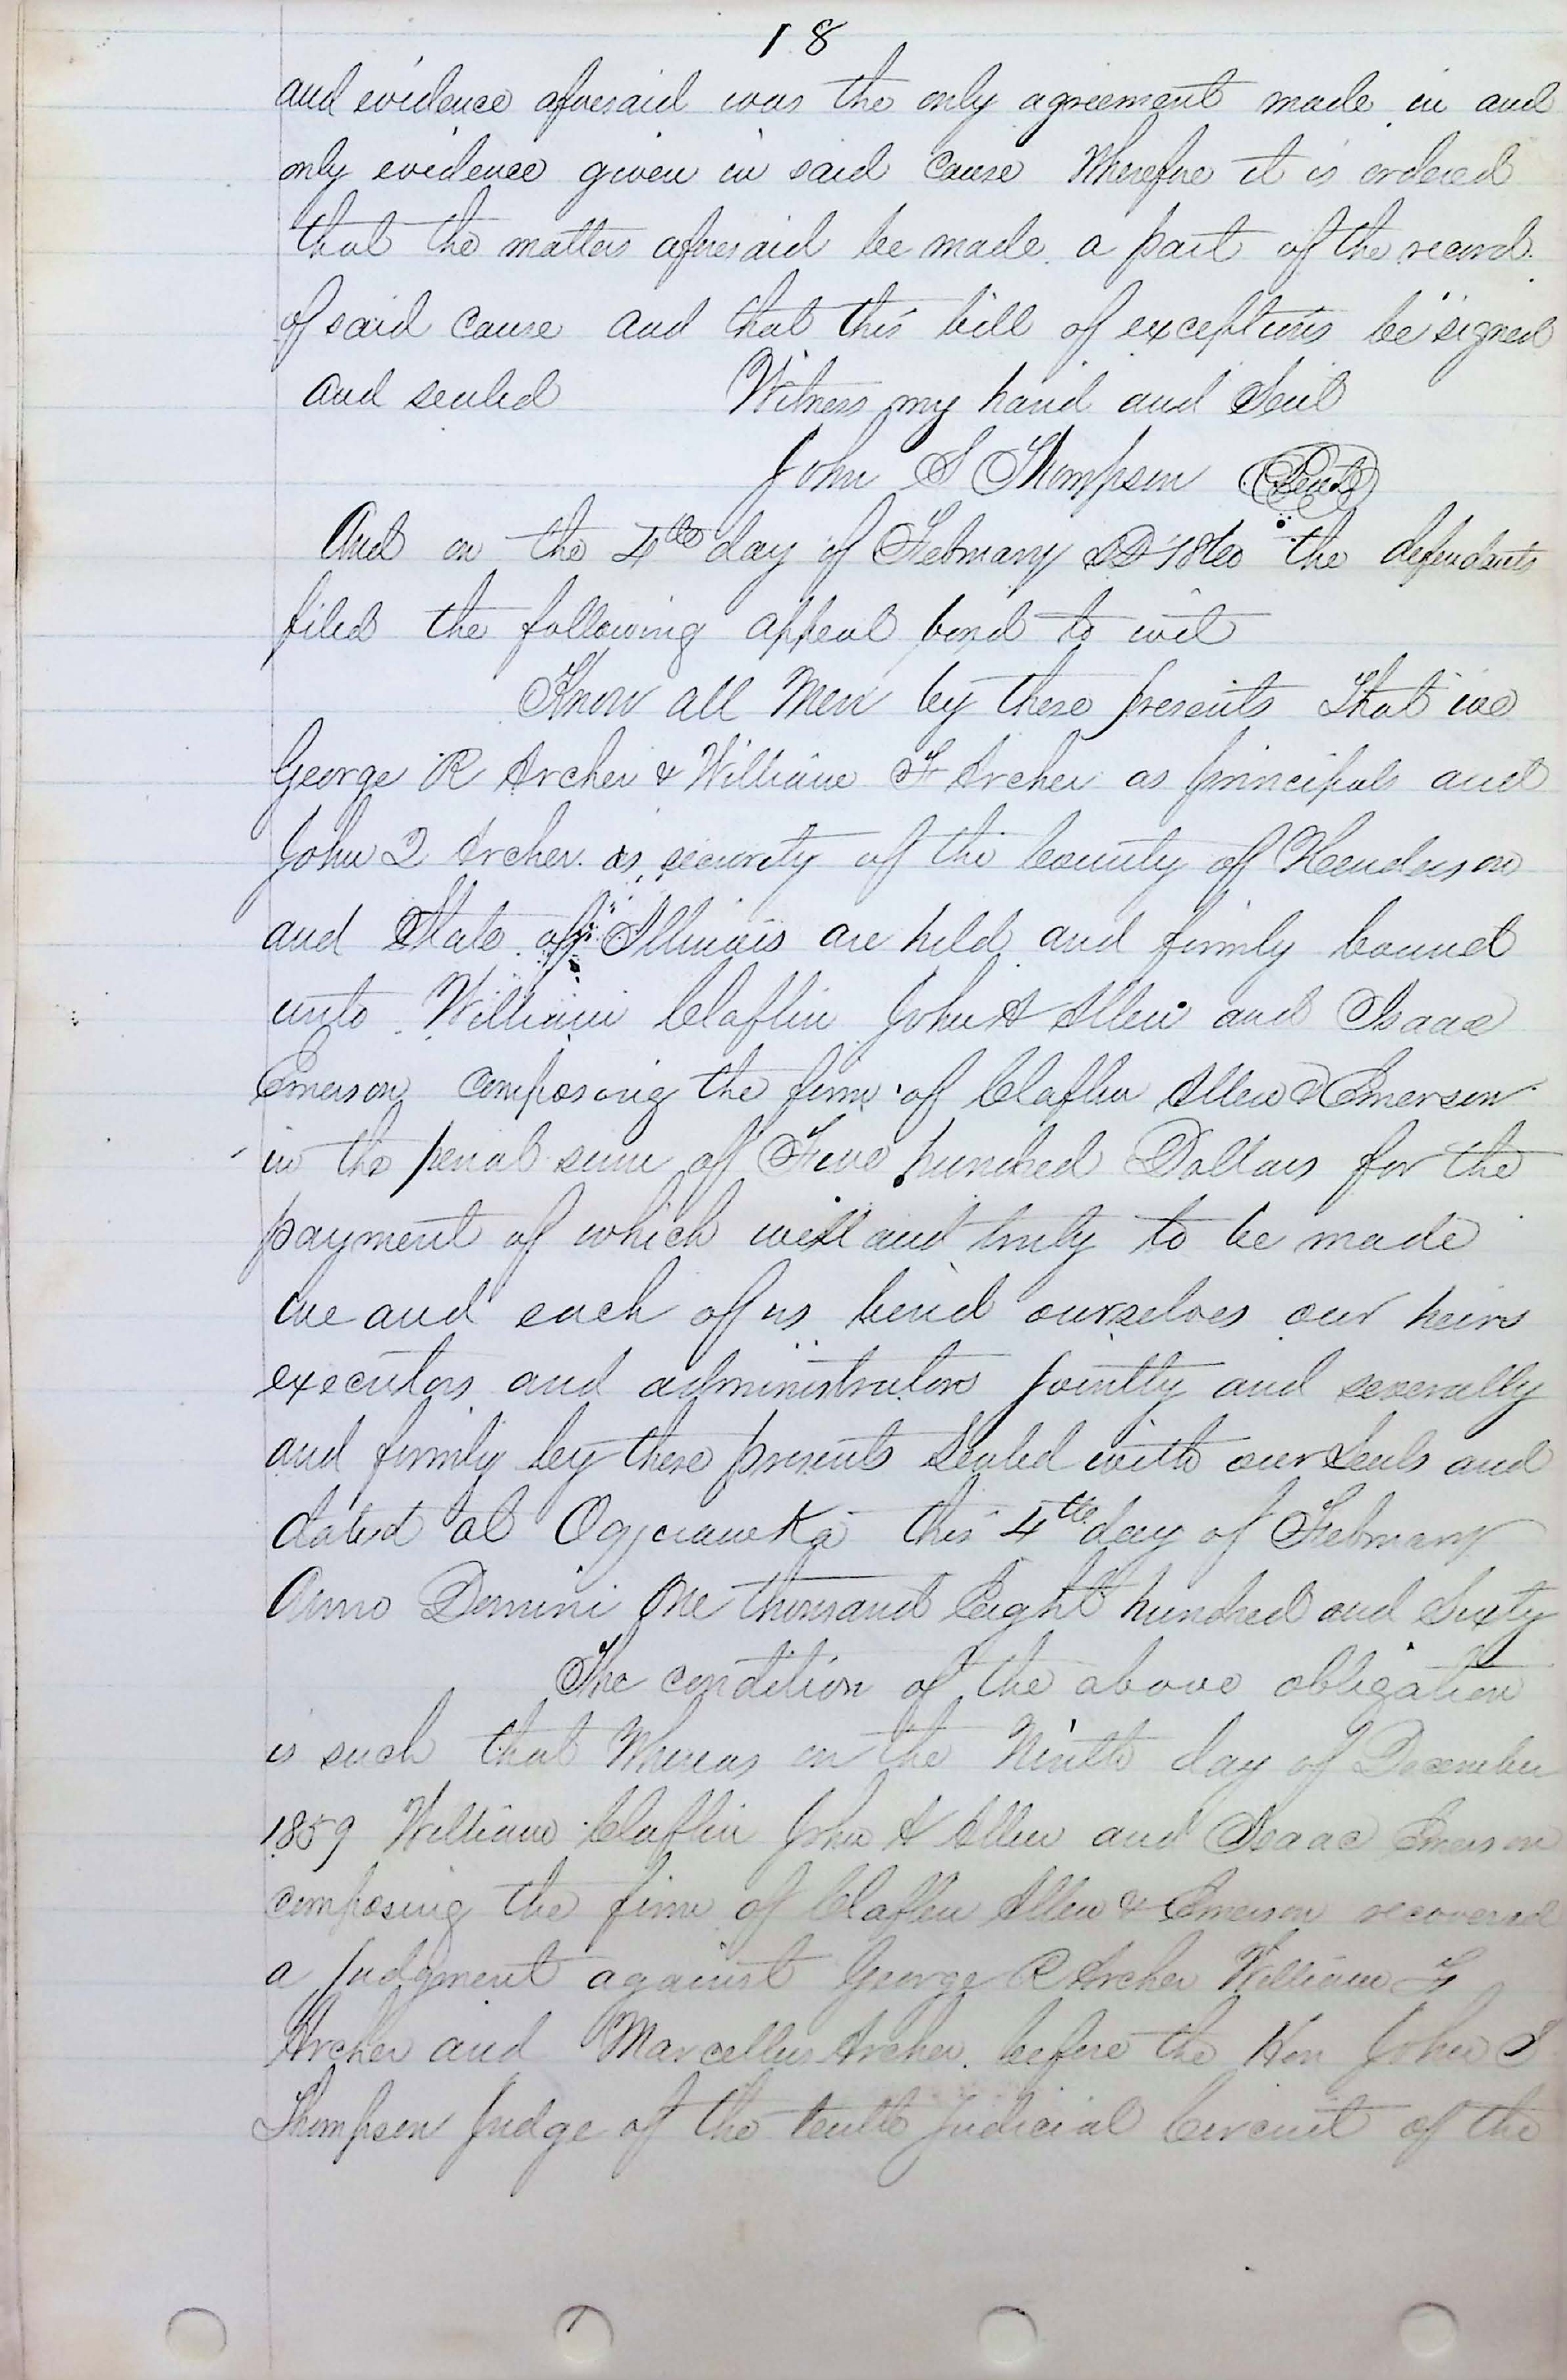 18
and evidence aforesaid was the only agreement made in and
only evidence given in said Cause Wherefore it is ordered
that the matters aforesaid be made a part of the record
of said Cause and that this bill of exceptions be signed
and sealed Witness my hand and Seal
John S Thompson Seal
And on the 4th day of February AD 1860 the defendants
filed the following appeal bond to wit
Know all Men by these presents That we
George R Archer & William F Archer as principals and
John Q Archer as security of the County of Henderson
and State of Illinois are held and firmly bound
unto William Claflin John A Allen and Isaac
Emerson composing the firm of Claflin Allen & Emerson
in the penal sum of Five hundred Dollars for the
payment of which well and truly to be made
we and each of us bind ourselves our heirs
executors and administrators jointly and severally
and firmly by these presents Sealed with our Seals and
dated at Oquawka this 4th day of February
Anno Domini One thousand Eight hundred and Sixty
The condition of the above obligation
is such that Whereas on the Ninth day of December
1859 William Claflin John A Allen and Isaac Emerson
composing the firm of Claflin Allen & Emerson recovered
a judgment against George R Archer William F
Archer and Marcellus Archer before the Hon John S
Thompson Judge of the tenth Judicial Circuit of the